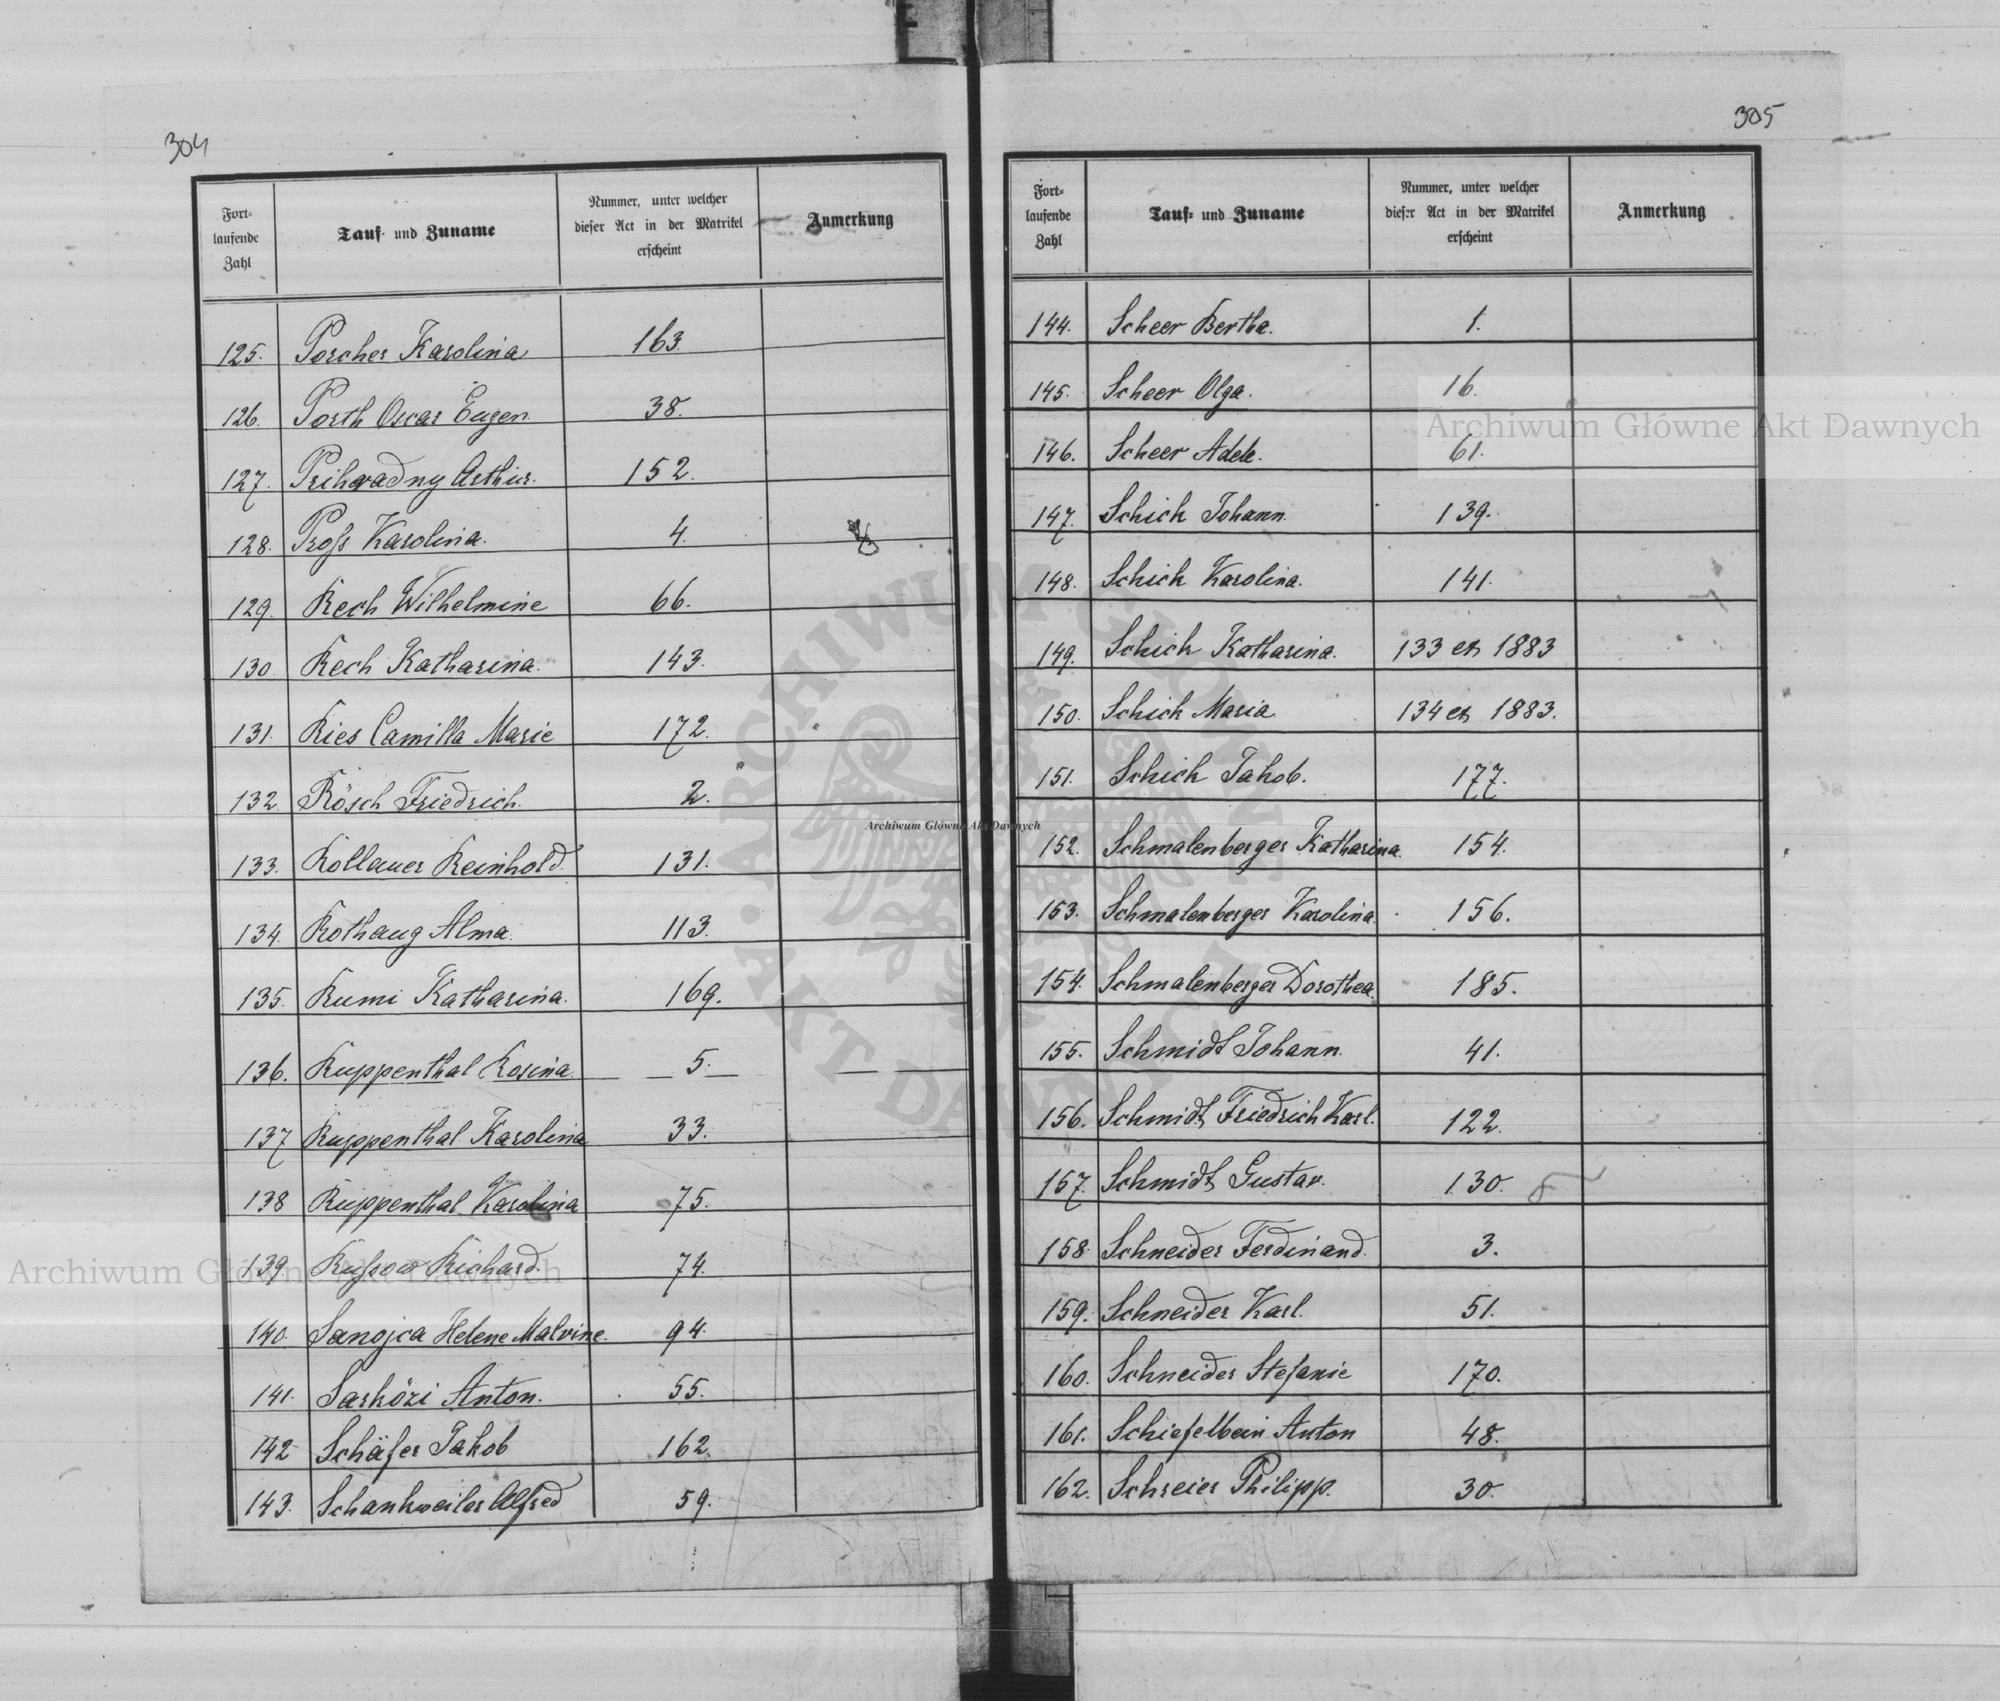 304
Fort-
laufende
Zahl
Tauf- und Zuname
Nummer, unter welcher
dieser Act in der Matrikel
erscheint
Anmerkung
125. Porcher Karolina 163.
126. Porth Oscar Eugen. 38.
127. Prihradny Arthur. 152.
128. Proß Karolina. 4.
129. Rech Wilhelmine 66.
130. Rech Katharina. 143.
131. Ries Camilla Marie 172.
132. Rösch Friedrich. 2.
133. Rollauer Reinhold. 131.
134. Rothaug Alma. 113.
135. Rumi Katharina. 169.
136. Ruppenthal Rosina. 5.
137 Ruppenthal Karolina 33.
138 Ruppenthal Karolina 75.
139. Rußow Richard. 74.
140. Sanojca Helene Malvine. 94.
141. Sarközi Anton. 55.
142 Schäfer Jakob 162.
143. Schankweiler Alfred 59.
305
Fort-
laufende
Zahl
Tauf- und Zuname
Nummer, unter welcher
dieser Act in der Matrikel
erscheint
Anmerkung
144. Scheer Bertha. 1.
145. Scheer Olga. 16.
146. Scheer Adele. 61.
147. Schick Johann. 139.
148. Schick Karolina. 141.
149. Schick Katharina. 133 ex 1883
150. Schick Maria 134 ex 1883.
151. Schick Jakob. 177.
152. Schmalenberger Katharina. 154.
153. Schmalenberger Karolina. 156.
154. Schmalenberger Dorothea. 185.
155. Schmidt Johann. 41.
156. Schmidt Friedrich Karl. 122.
157. Schmidt Gustav. 130.
158. Schneider Ferdinand. 3.
159. Schneider Karl. 51.
160. Schneider Stefanie 170.
161. Schiefelbein Anton 48.
162. Schreier Philipp. 30.
Archiwum Główne Akt Dawnych
Archiwum Główne Akt Dawnych
Archiwum Główne Akt Dawnych